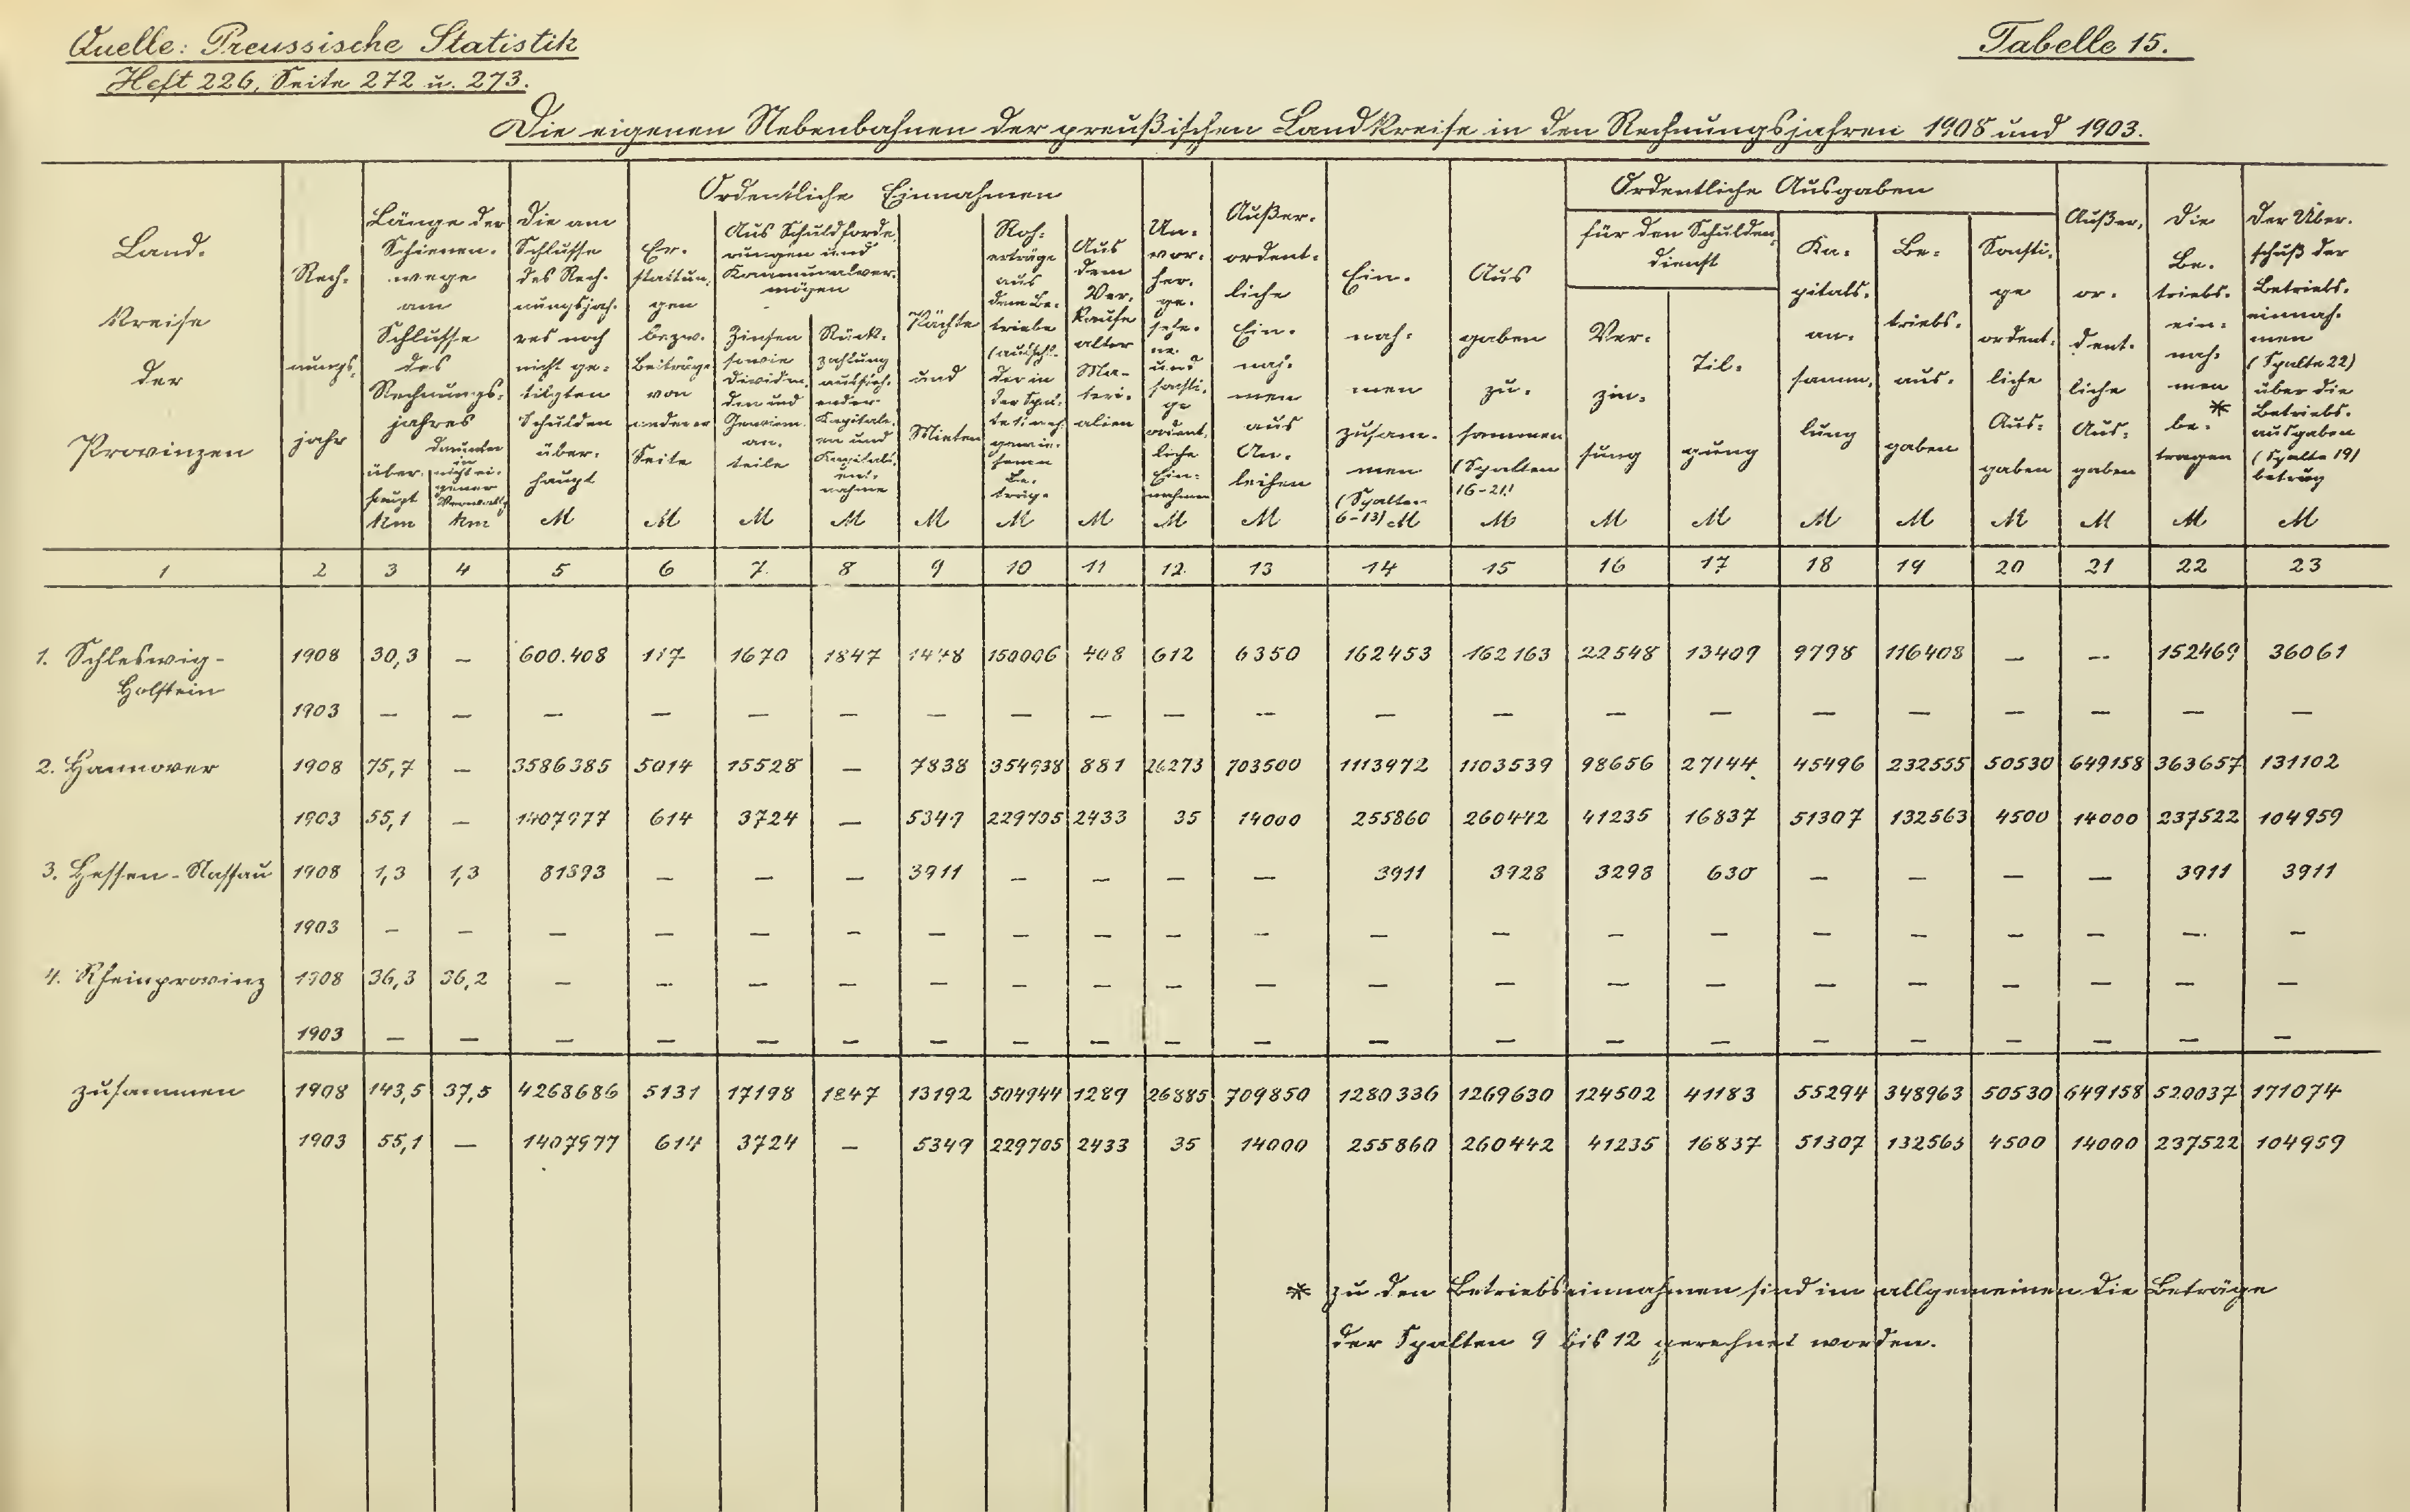 Quelle: Preussische Statistik
Heft 226, Seite 272 u. 273.
Tabelle 15.
Die eigenen Nebenbahnen der preußischen Landkreise in den Rechnungsjahren 1908 und 1903.
Land-
kreise
der
Provinzen
Rech-
nungs-
jahr
Länge der
Schienen-
wege
am
Schlusse
des
Rechnungs-
jahres
über-
haupt
km
darunter
in
nicht ei-
gener
Verwaltg
km
Die am
Schlusse
des Rech-
nungsjah-
res noch
nicht ge-
tilgten
Schulden
über-
haupt
M
Ordentliche Einnahmen
Er-
stattun-
gen
bezw.
Beiträge
von
anderer
Seite
M
Aus Schuldforde-
rungen und
Kommunalver-
mögen
Zinsen
sowie
Dividen-
den und
Gewinn-
an-
teile
M
Rück-
zahlung
aussteh-
ender
Kapitalien
und
Kapitals-
ent-
nahme
M
Pächte
und
Mieten
M
Roh-
erträge
aus
dem Be-
triebe
(ausschl.
der in
der Spal-
te
Be-
träge
M
Aus
dem
Ver-
kaufe
alter
Ma-
teri-
alien
M
Un-
vor-
her-
ge-
sehe-
ne
und
sonsti-
ge
ordent-
liche
Ein-
nahmen
M
Außer-
ordent-
liche
Ein-
nah-
men
aus
An-
leihen
M
Ein-
nah-
men
zusam-
men
(Spalten
6-13) M
Aus
gaben
zu-
sammen
(Spalten
16-21)
M
Ordentliche Ausgaben
für den Schulden-
dienst
Ver-
zin-
sung
M
Til-
gung
M
Ka-
pitals-
an-
samm-
lung
M
Be-
triebs-
aus-
gaben
M
Sonsti-
ge
ordent-
liche
Aus-
gaben
M
Außer-
or-
dent-
liche
Aus-
gaben
M
Die
Be-
triebs-
ein-
nah-
men
*
be-
tragen
M
Der Über-
schuß der
Betriebs-
einnah-
men
(Spalte 22)
über die
Betriebs-
ausgaben
(Spalte 19)
betrug
M
1 2 3 4 5 6 7. 8 9 10 11 12 13 14 15 16 17 18 19 20 21 22 23
1. Schleswig- 1908 30,3 — 600.408 117 1670 1847 1448 150006 408 612 6350 162453 162163 22548 13409 9798 116408 — — 152469 36061
Holstein
1903 — — — — — — — — — — — — — — — — — — — — —
2. Hannover 1908 75,7 — 3586385 5014 15528 — 7838 354938 881 26273 703500 1113972 1103539 98656 27144 45496 232555 50530 649158 363657 131102
1903 55,1 — 1407977 614 3724 — 5349 229705 2433 35 14000 255860 260442 41235 16837 51307 132563 4500 14000 237522 104959
3. Hessen-Nassau 1908 1,3 1,3 81893 — — — 3911 — — — — 3911 3928 3298 630 — — — — 3911 3911
1903 — — — — — — — — — — — — — — — — — — — — —
4. Rheinprovinz 1908 36,3 36,2 — — — — — — — — — — — — — — — — — — —
1903 — — — — — — — — — — — — — — — — — — — — —
zusammen 1908 143,5 37,5 4268686 5131 17198 1847 13192 504944 1289 26885 709850 1280336 1269630 124502 41183 55294 348963 50530 649158 520037 171074
1903 55,1 — 1407977 614 3724 — 5349 229705 2433 35 14000 255860 260442 41235 16837 51307 132563 4500 14000 237522 104959
* zu den Betriebseinnahmen sind im allgemeinen die Beträge
der Spalten 9 bis 12 gerechnet worden.